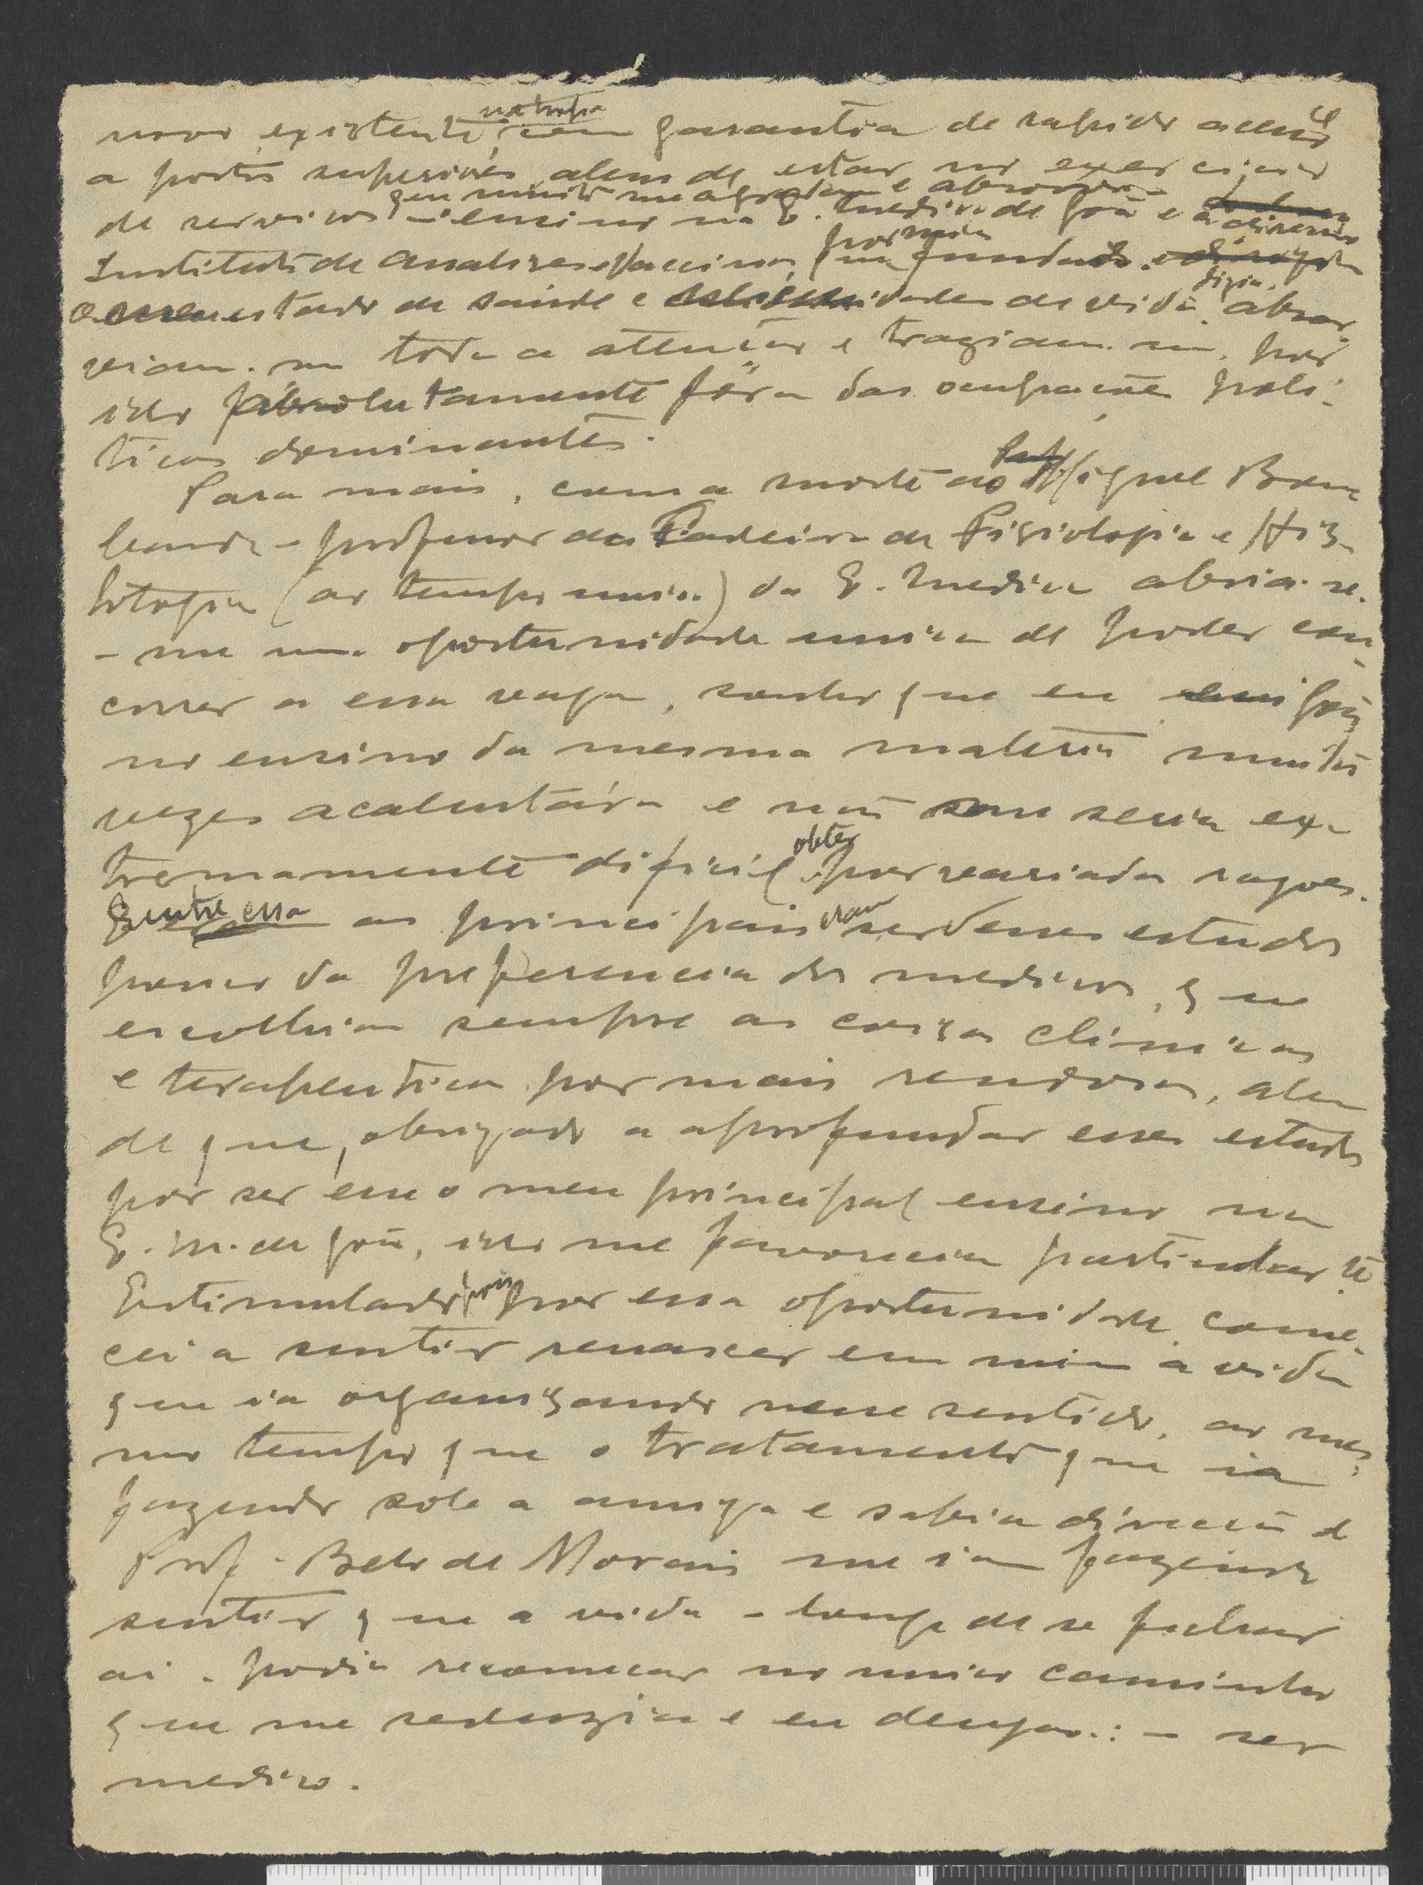 na tropa
novo existente, com garantia de rapido acesso
a postos superiores alem de estar no exercicio
que muito me agradava e absorvia
de serviços - ensino na E. Medica de Goa e a direcção
por mim
Instituto de Analises e Vaccina, que fundado e
digia.
estado de saude e de vida absor
viam-me toda a attenção e traziam-me, por
isso absolutamente fóra das ocupações poli-
ticas dominantes.
Para mais, com a morte do Miguel Bom
barda - professor da Cadeira de Fisiologia e His-
tologia (ao tempo unica) da E. Medica abria-se-
- me uma oportunidade unica de poder con-
correr a essa vaga, sonho que eu em Goa
no ensino da mesma materia muitas
vezes acalentára e não me seria ex-
obter
tremamente dificil por variadas razões.
Entre essa as principais eram ser desses estudos
pouco da preferencia dos medicos, que
escolhiam sempre as coisas clinicas
e terapeutica por mais rendosas, alem
de que, obrigado a aprofundar esses estudos
por ser esse o meu principal ensino na
E. M. de Goa, isso me favorecia particular te
Estimulado pois por essa oportunidade come-
cei a sentir renascer em mim a vida
que ia organizando nesse sentido, ao mes-
mo tempo que o tratamento que ia
fazendo sob a amiga e sabia direcção d
Prof. Belo de Morais me ia fazendo
sentir que a vida - longe de se fechar
ai - podia recomeçar no unico caminho
que me seduzia e eu desejava: - ser
medico.